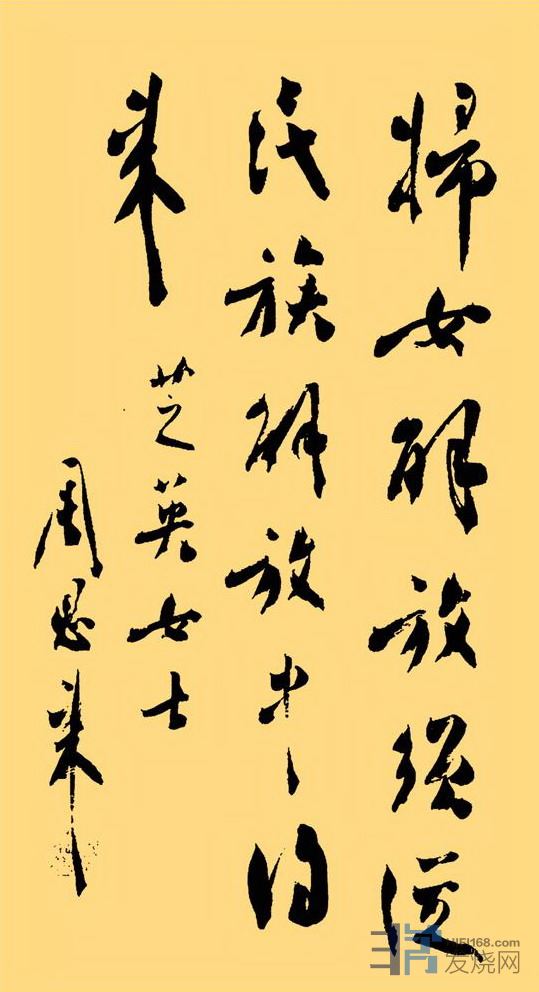 婦女解放須從
民族解放中得
来
芝英女士
周恩来
HIFI168.com
发烧网